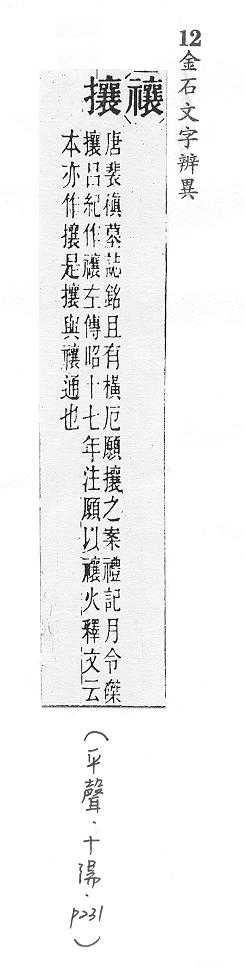 12金石文字辨異
(禳)
攘
唐裴稹墓誌銘且有橫厄願攘之案禮記月令傑
攘呂紀作禳左傳昭十七年注願以禳火釋文云
本亦作攘是攘與禳通也
(平聲．十陽．P231)